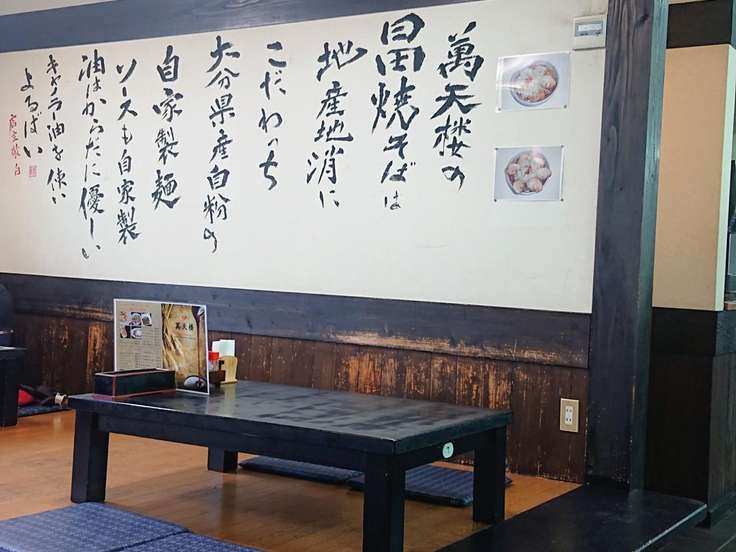 萬天楼の
日田焼そばは
地産地消に
こだわっち
大分県産白粉の
自家製麺
ソースも自家製
油はからだに優しい
キャノラー油を使い
よるばい
店主敬白
萬天楼